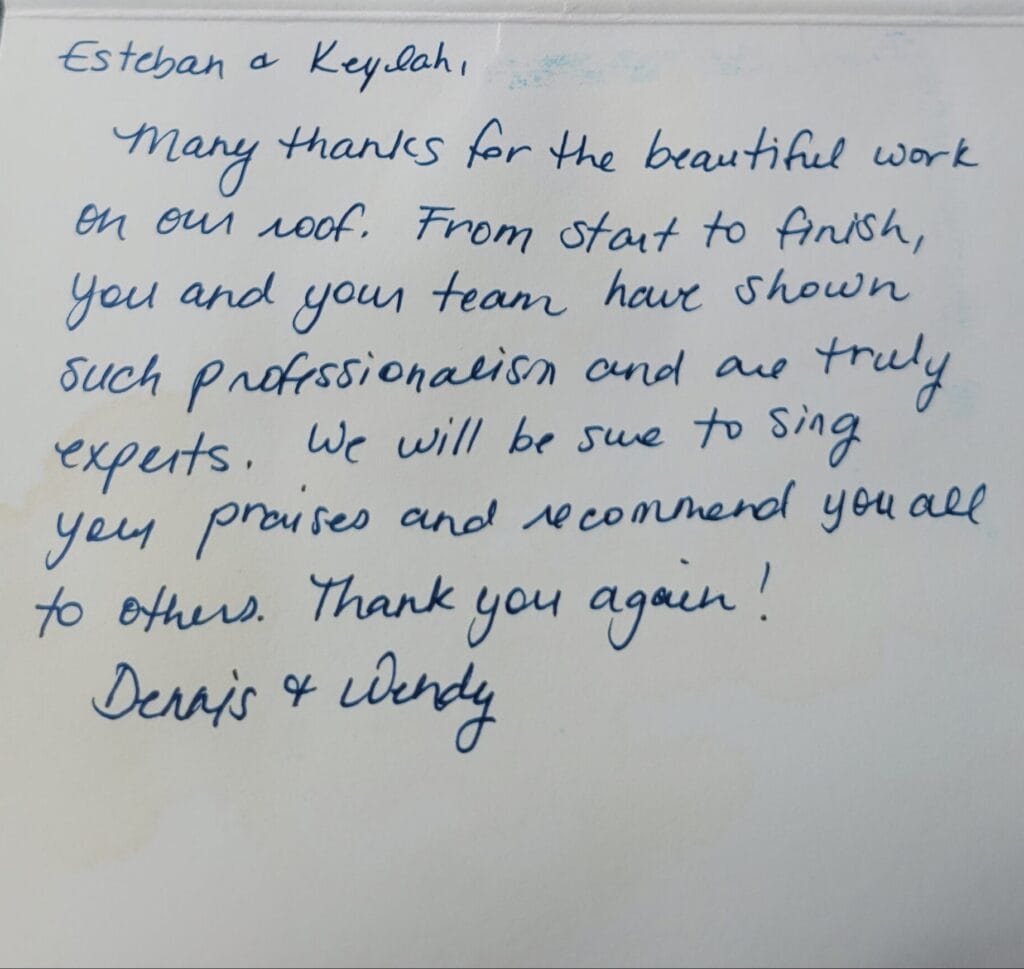 Esteban & Keylah,
Many thanks for the beautiful work
on our roof. From start to finish,
you and your team have shown
such professionalism and are truly
experts. We will be sure to sing
your praises and recommend you all
to others. Thank you again!
Dennis & Wendy